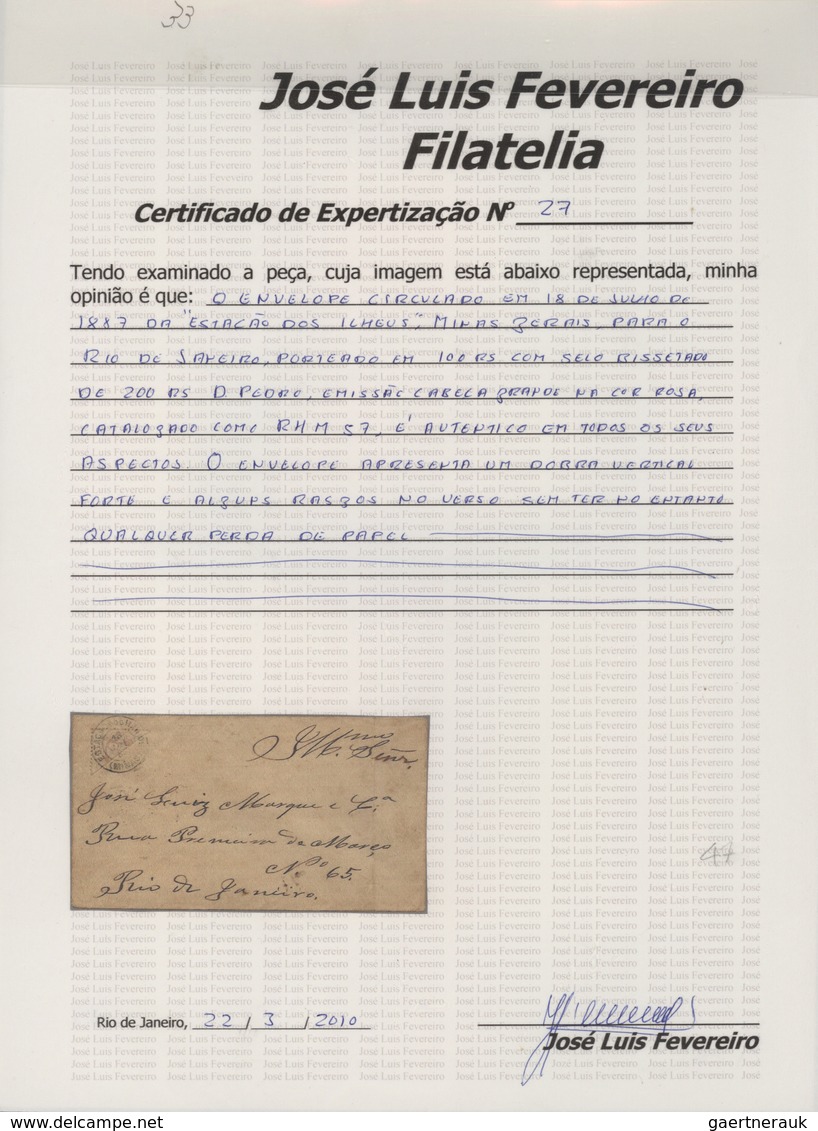 33
José Luis Fevereiro
Filatelia
Certificado de Expertização Nº 27
Tendo examinado a peça, cuja imagem está abaixo representada, minha
opinião é que: O ENVELOPE CIRCULADO EM 18 DE JULHO DE
1887 DA "ESTACÃO DOS ILHEUS", MINAS GERAIS, PARA O
RIO DE JANEIRO, PORTEADO EM 100 RS COM SELO BISSETADO
DE 200 RS D. PEDRO, EMISSÃO CABECA GRANDE NA COR ROSA,
CATALOGADO COMO RHM 57, É AUTENTICO EM TODOS OS SEUS
ASPECTOS. O ENVELOPE APRESENTA UM DOBRA VERTICAL
FORTE E ALGUNS RASGOS NO VERSO SEM TER NO ENTANTO
QUALQUER PERDA DE PAPEL
Illmo Senr.
José Luiz Marque e Cª
Rua Premeiro de Março
Nº 65.
Rio de Janeiro.
47
Rio de Janeiro, 22 / 3 / 2010
José Luis Fevereiro
www.delcampe.net
gaertnerauk